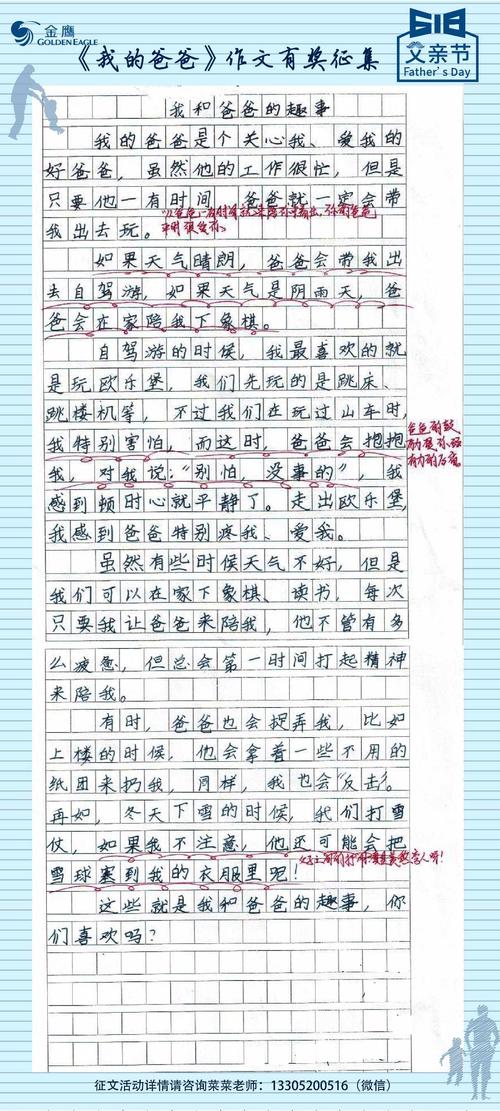 金鹰
GOLDEN EAGLE
《我的爸爸》作文有奖征集
618
父亲节
Father's Day
我和爸爸的趣事
我的爸爸是个关心我、爱我的
好爸爸，虽然他的工作很忙，但是
只要他一有时间，爸爸就一定会带
我出去玩。
如果天气晴朗，爸爸会带我出
去自驾游，如果天气是阴雨天，爸
爸会在家陪我下象棋。
自驾游的时候，我最喜欢的就
是玩欧乐堡，我们先玩的是跳床、
跳楼机等，不过我们在玩过山车时，
我特别害怕，而这时，爸爸会抱抱
我，对我说：“别怕，没事的”，我
感到顿时心就平静了。走出欧乐堡，
我感到爸爸特别疼我、爱我。
虽然有些时候天气不好，但是
我们可以在家下象棋、读书，每次
只要我让爸爸来陪我，他不管有多
么疲惫，但总会第一时间打起精神
来陪我。
有时，爸爸也会捉弄我，比如
上楼的时候，他会拿着一些不用的
纸团来扔我，同样，我也会“反击”。
再如，冬天下雪的时候，我们打雪
仗，如果我不注意，他还可能会把
雪球塞到我的衣服里呢！
这些就是我和爸爸的趣事，你
们喜欢吗？
征文活动详情请咨询莱莱老师：13305200516（微信）